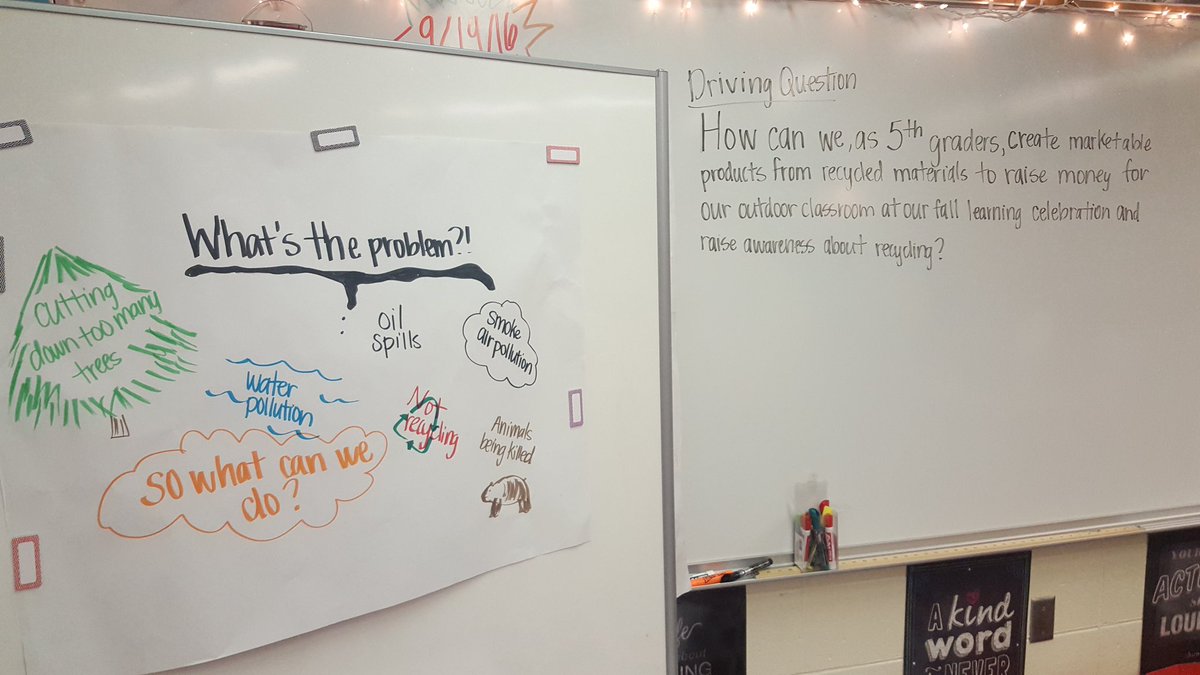 9/19/16
What's the problem?!
cutting
down too many
trees
oil
spills
smoke
air pollution
water
pollution
Not
recycling
Animals
being killed
So what can we
do?
Driving Question
How can we, as 5th graders, create marketable
products from recycled materials to raise money for
our outdoor classroom at our fall learning celebration and
raise awareness about recycling?
A kind
word
NEVER